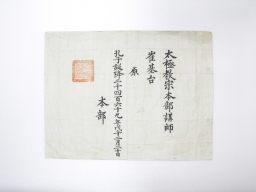 太極敎宗本部講師
崔基台
原
孔子誕降二千四百六十九年戊午三月二十日
本部